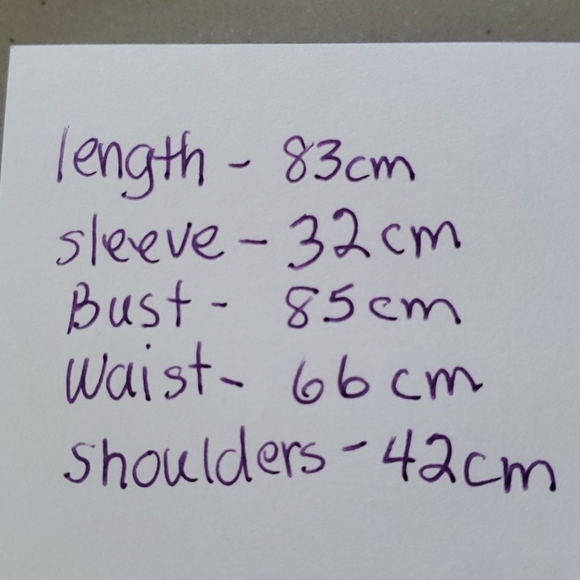 length - 83cm
sleeve - 32cm
Bust - 85cm
Waist - 66cm
Shoulders - 42cm